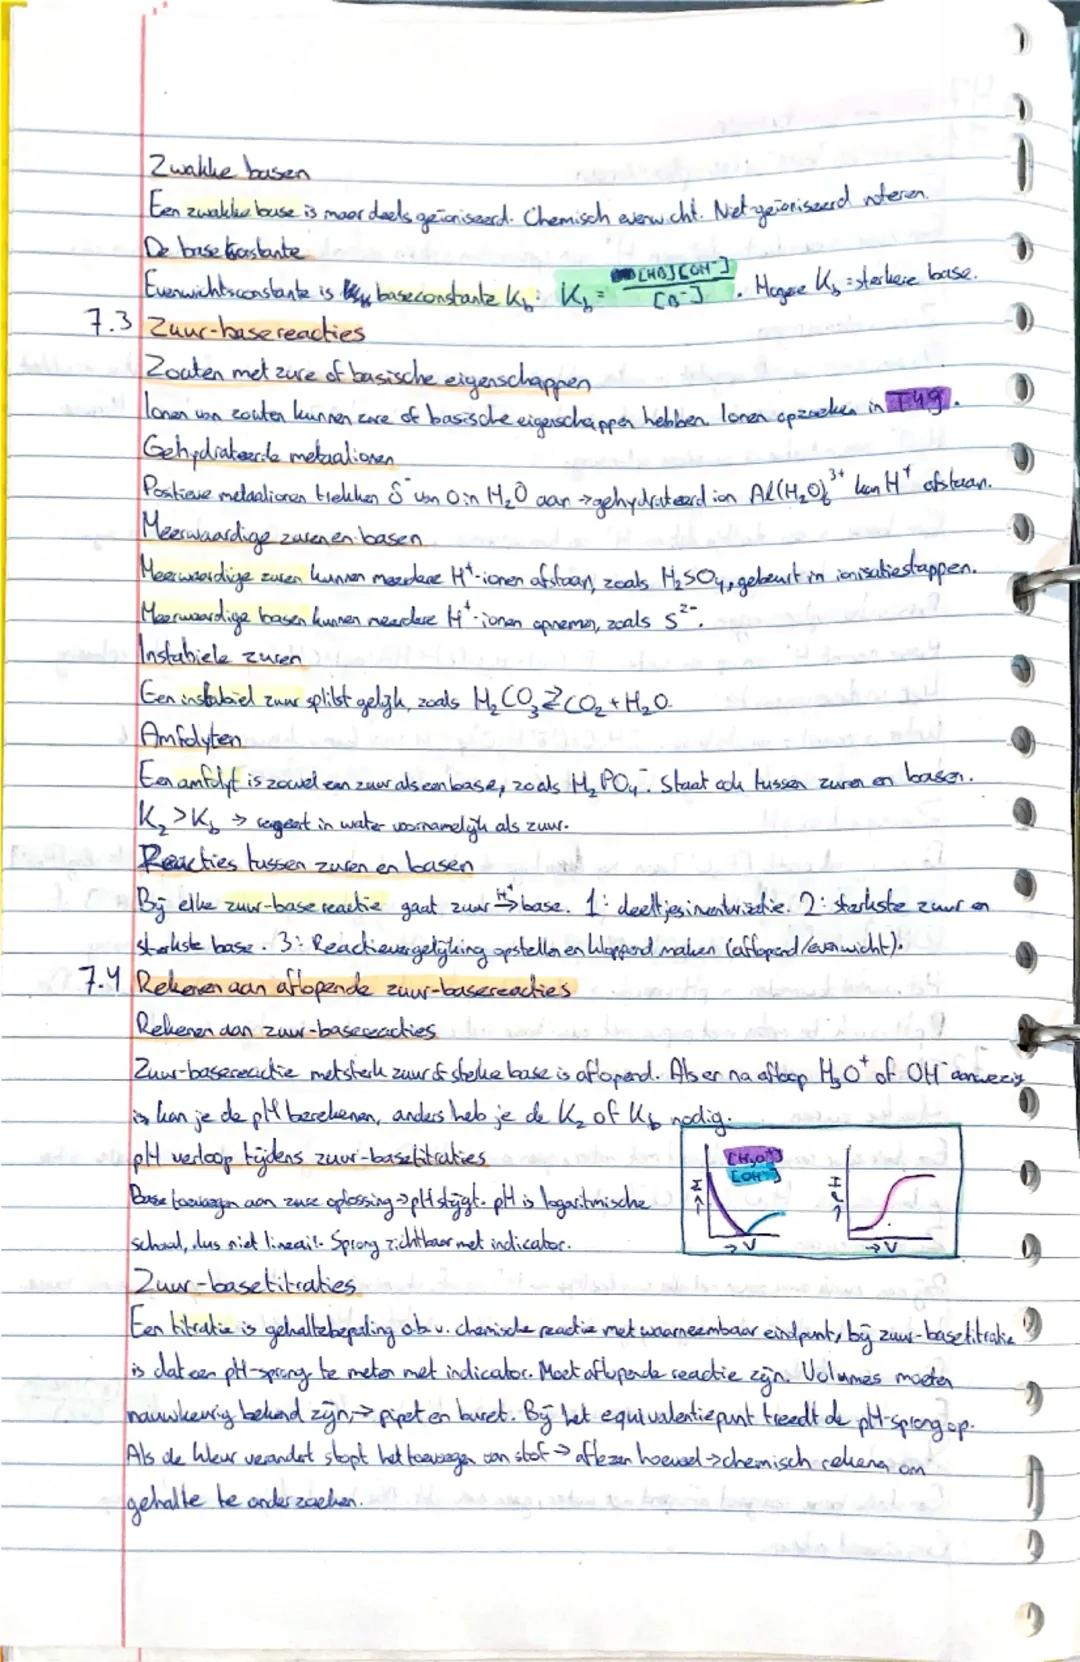 Zwakke basen
Een zwakke base is maar deels geïoniseerd. Chemisch evenwicht. Niet-geïoniseerd noteren.
De baseconstante
Evenwichtsconstante is baseconstante Kb: Kb = [HB][OH⁻] / [B⁻]. Hogere Kb = sterkere base.
7.3 Zuur-basereacties
Zouten met zure of basische eigenschappen
Ionen van zouten kunnen zure of basische eigenschappen hebben. Ionen opzoeken in T49.
Gehydrateerde metaalionen
Positieve metaalionen trekken δ⁻ van O in H₂O aan → gehydrateerd ion Al(H₂O)₆³⁺ kan H⁺ afstaan.
Meerwaardige zuren en basen
Meerwaardige zuren kunnen meerdere H⁺-ionen afstaan, zoals H₂SO₄, gebeurt in ionisatiestappen.
Meerwaardige basen kunnen meerdere H⁺-ionen opnemen, zoals S²⁻.
Instabiele zuren
Een instabiel zuur splitst gelijk, zoals H₂CO₃ ⇄ CO₂ + H₂O.
Amfolyten
Een amfolyt is zowel een zuur als een base, zoals H₂PO₄⁻. Staat ook tussen zuren en basen.
Kz > Kb → reageert in water voornamelijk als zuur.
Reacties tussen zuren en basen
Bij elke zuur-base reactie gaat zuur H⁺→ base. 1: deeltjesinventarisatie. 2: sterkste zuur en
sterkste base. 3: Reactievergelijking opstellen en kloppend maken (aflopend/evenwicht).
7.4 Rekenen aan aflopende zuur-basereacties
Rekenen aan zuur-basereacties
Zuur-basereactie met sterk zuur of sterke base is aflopend. Als er na afloop H₃O⁺ of OH⁻ aanwezig
is kan je de pH berekenen, anders heb je de Kz of Kb nodig.
pH verloop tijdens zuur-basetitraties
Base toevoegen aan zure oplossing → pH stijgt. pH is logaritmische
schaal, dus niet lineair. Sprong zichtbaar met indicator.
[H₃O⁺]
[OH⁻]
→ V
→ V
Zuur-basetitraties
Een titratie is gehaltebepaling o.b.v. chemische reactie met waarneembaar eindpunt, bij zuur-basetitratie
is dat een pH-sprong te meten met indicator. Moet aflopende reactie zijn. Volumes moeten
nauwkeurig bekend zijn, → pipet en buret. Bij het equivalentiepunt treedt de pH-sprong op.
Als de kleur verandert stopt het toevoegen van stof → aflezen hoeveel → chemisch rekenen om
gehalte te onderzoeken.